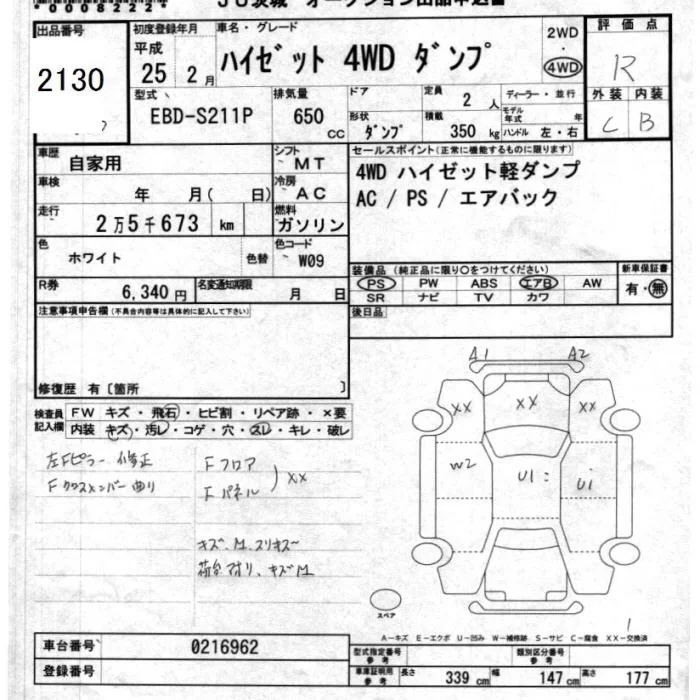 *0008222*
JU茨城 オークション出品申込書
出品番号 初度登録年月 車名・グレード 2WD・4WD 評価点
2130 平成 25年 2月 ハイゼット 4WD ダンプ R
型式 排気量 ドア 定員 2人 ディーラー・並行 外装 内装
EBD-S211P 650cc 形状 ダンプ 積載 350kg モデル年式 年 ハンドル 左・右 C B
車歴 自家用 シフト MT セールスポイント(正常に機能するものに限ります)
車検 年 月( 日) 冷房 AC 4WD ハイゼット軽ダンプ
走行 2万5千673 km 燃料 ガソリン AC / PS / エアバック
色 ホワイト 色替 色コード W09
装備品(純正品に限り○をつけてください) 新車保証書
R券 6,340円 名変通知期限 月 日 PS PW ABS エアB AW 有・無
SR ナビ TV カワ
注意事項申告欄(不具合内容等は具体的に記入して下さい) 後日品
修復歴 有〔箇所 〕
検査員記入欄 FW キズ・飛石・ヒビ割・リペア跡・×要
内装 キズ・汚レ・コゲ・穴・スレ・キレ・破レ
A1 A2
XX XX XX
左Fピラー 修正 Fフロア
Fクロスメンバー曲り Fパネル XX
W2 U1 U1
キズ、M、スリキズ
荷台アオリ、キズM
スペア
A―キズ E―エクボ U―凹み W―補修跡 S―サビ C―腐食 XX―交換済
車台番号 0216962 型式指定番号 参考 類別区分番号 参考
登録番号 車庫証明用 参考 長さ 339cm 幅 147cm 高さ 177cm